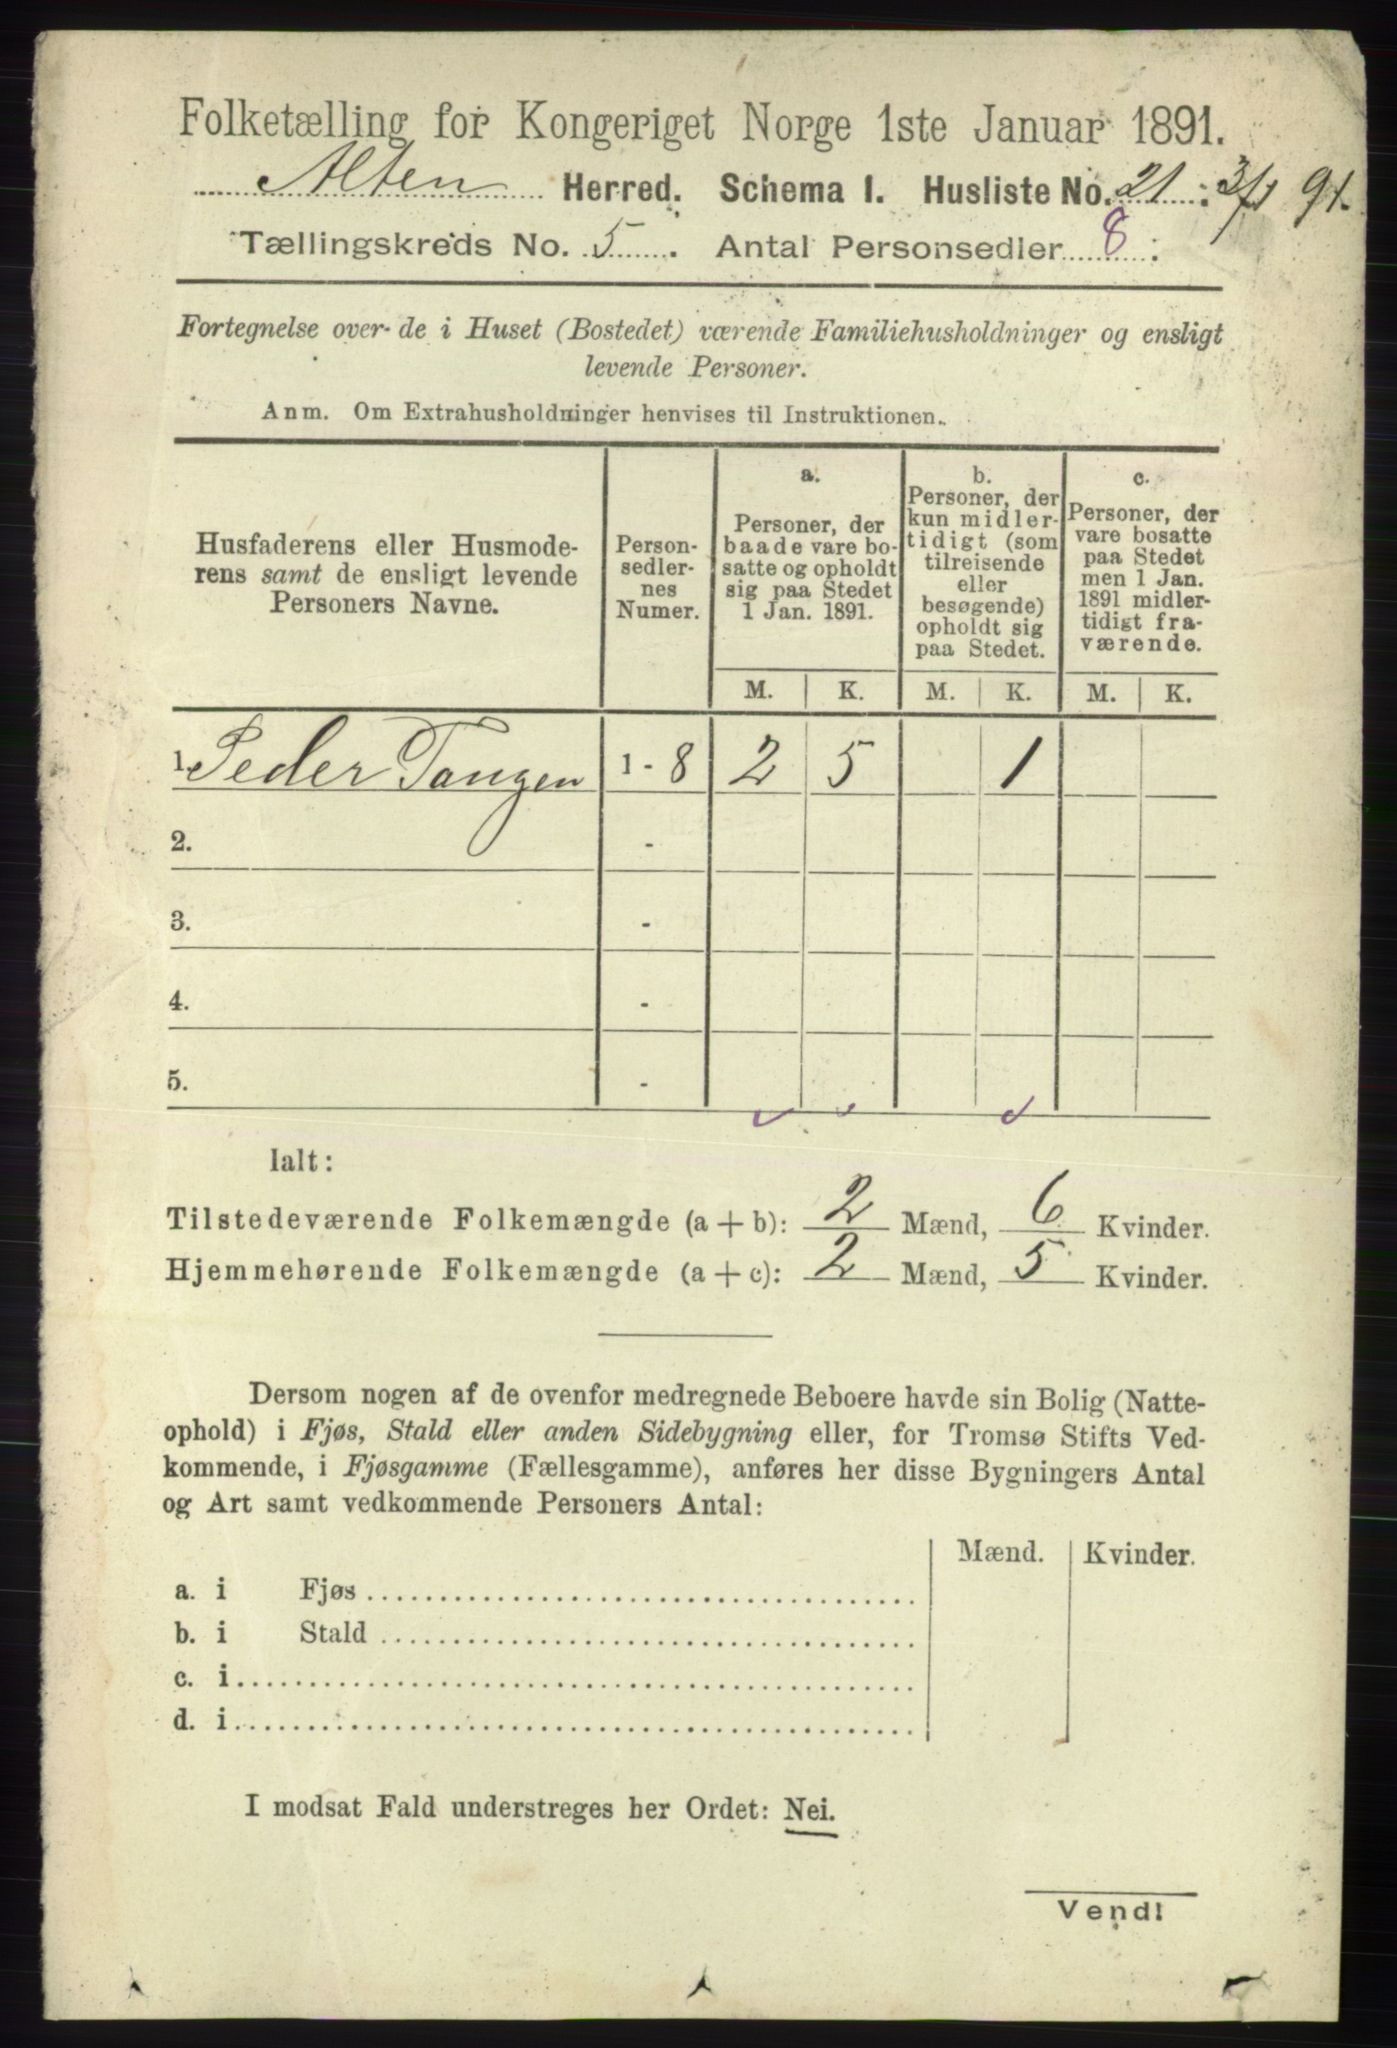 Folketælling for Kongeriget Norge 1ste Januar 1891.
Alten Herred. Schema I. Husliste No. 21 : 3/1 91.
Tællingskreds No. 5 . Antal Personsedler 8 :
Fortegnelse over de i Huset (Bostedet) værende Familiehusholdninger og ensligt
levende Personer.
Anm. Om Extrahusholdninger henvises til Instruktionen.
Husfaderens eller Husmode-
rens samt de ensligt levende
Personers Navne.
Person-
sedler-
nes
Numer.
a.
Personer, der
baade vare bo-
satte og opholdt
sig paa Stedet
1 Jan. 1891.
b.
Personer, der
kun midler-
tidigt (som
tilreisende
eller
besøgende)
opholdt sig
paa Stedet.
c.
Personer, der
vare bosatte
paa Stedet
men 1 Jan.
1891 midler-
tidigt fra-
værende.
M. K. M. K. M. K.
1. Peder Tangen 1 - 8 2 5 1
2. -
3. -
4. -
5. -
Ialt:
Tilstedeværende Folkemængde (a + b): 2 Mænd, 6 Kvinder.
Hjemmehørende Folkemængde (a + c): 2 Mænd, 5 Kvinder.
Dersom nogen af de ovenfor medregnede Beboere havde sin Bolig (Natte-
ophold) i Fjøs, Stald eller anden Sidebygning eller, for Tromsø Stifts Ved-
kommende, i Fjøsgamme (Fællesgamme), anføres her disse Bygningers Antal
og Art samt vedkommende Personers Antal:
Mænd. Kvinder.
a. i Fjøs
b. i Stald
c. i
d. i
I modsat Fald understreges her Ordet: Nei.
Vend!